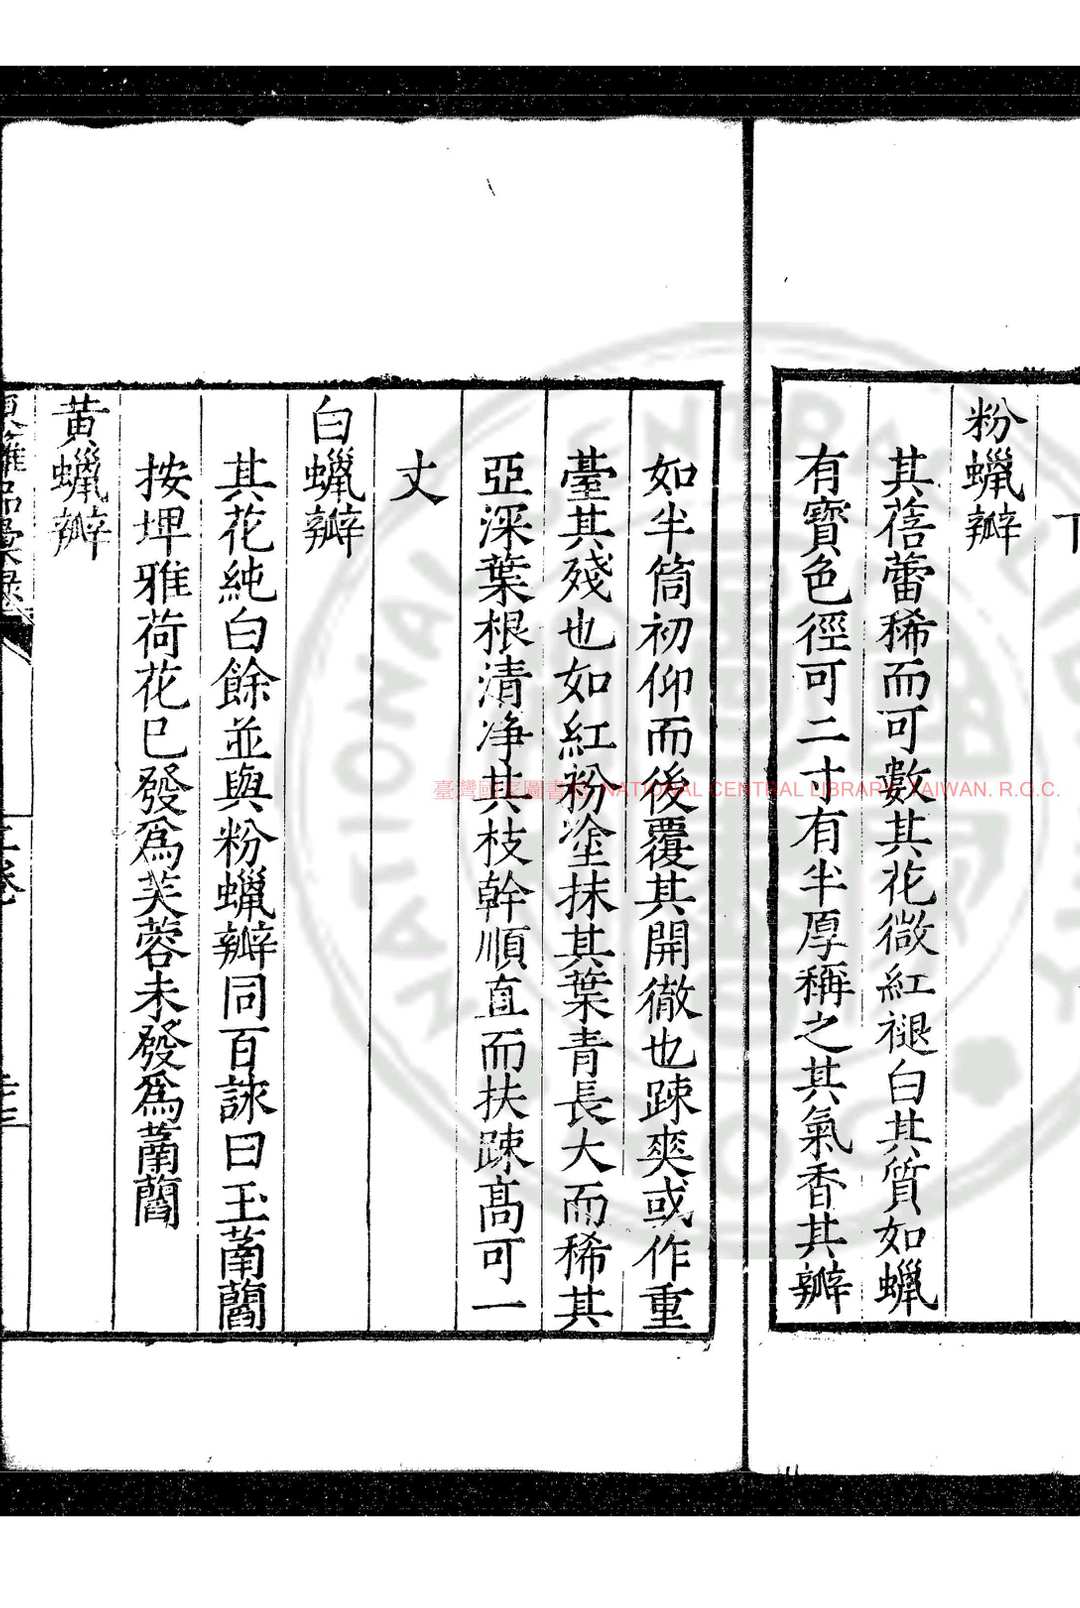 下
粉蠟瓣
其蓓蕾稀而可數其花微紅褪白其質如蠟
有寶色徑可二寸有半厚稱之其氣香其瓣
如半筒初仰而後覆其開徹也踈爽或作重
臺其殘也如紅粉塗抹其葉青長大而稀其
亞深葉根清净其枝幹順直而扶踈高可一
丈
白蠟瓣
其花純白餘並與粉蠟瓣同百詠曰玉菡萏
按埤雅荷花已發爲芙蓉未發爲菡萏
黃蠟瓣
臺灣國家圖書館 NATIONAL CENTRAL LIBRARY, TAIWAN. R.O.C.